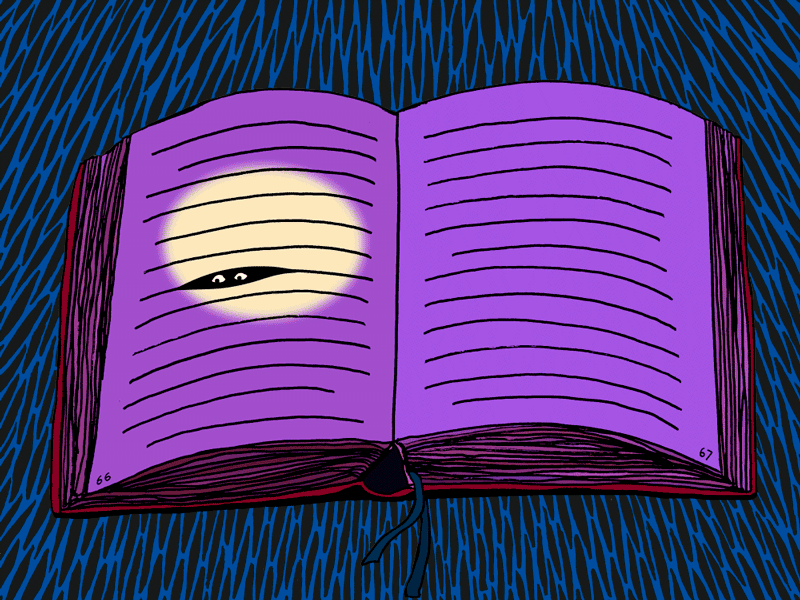 66
67